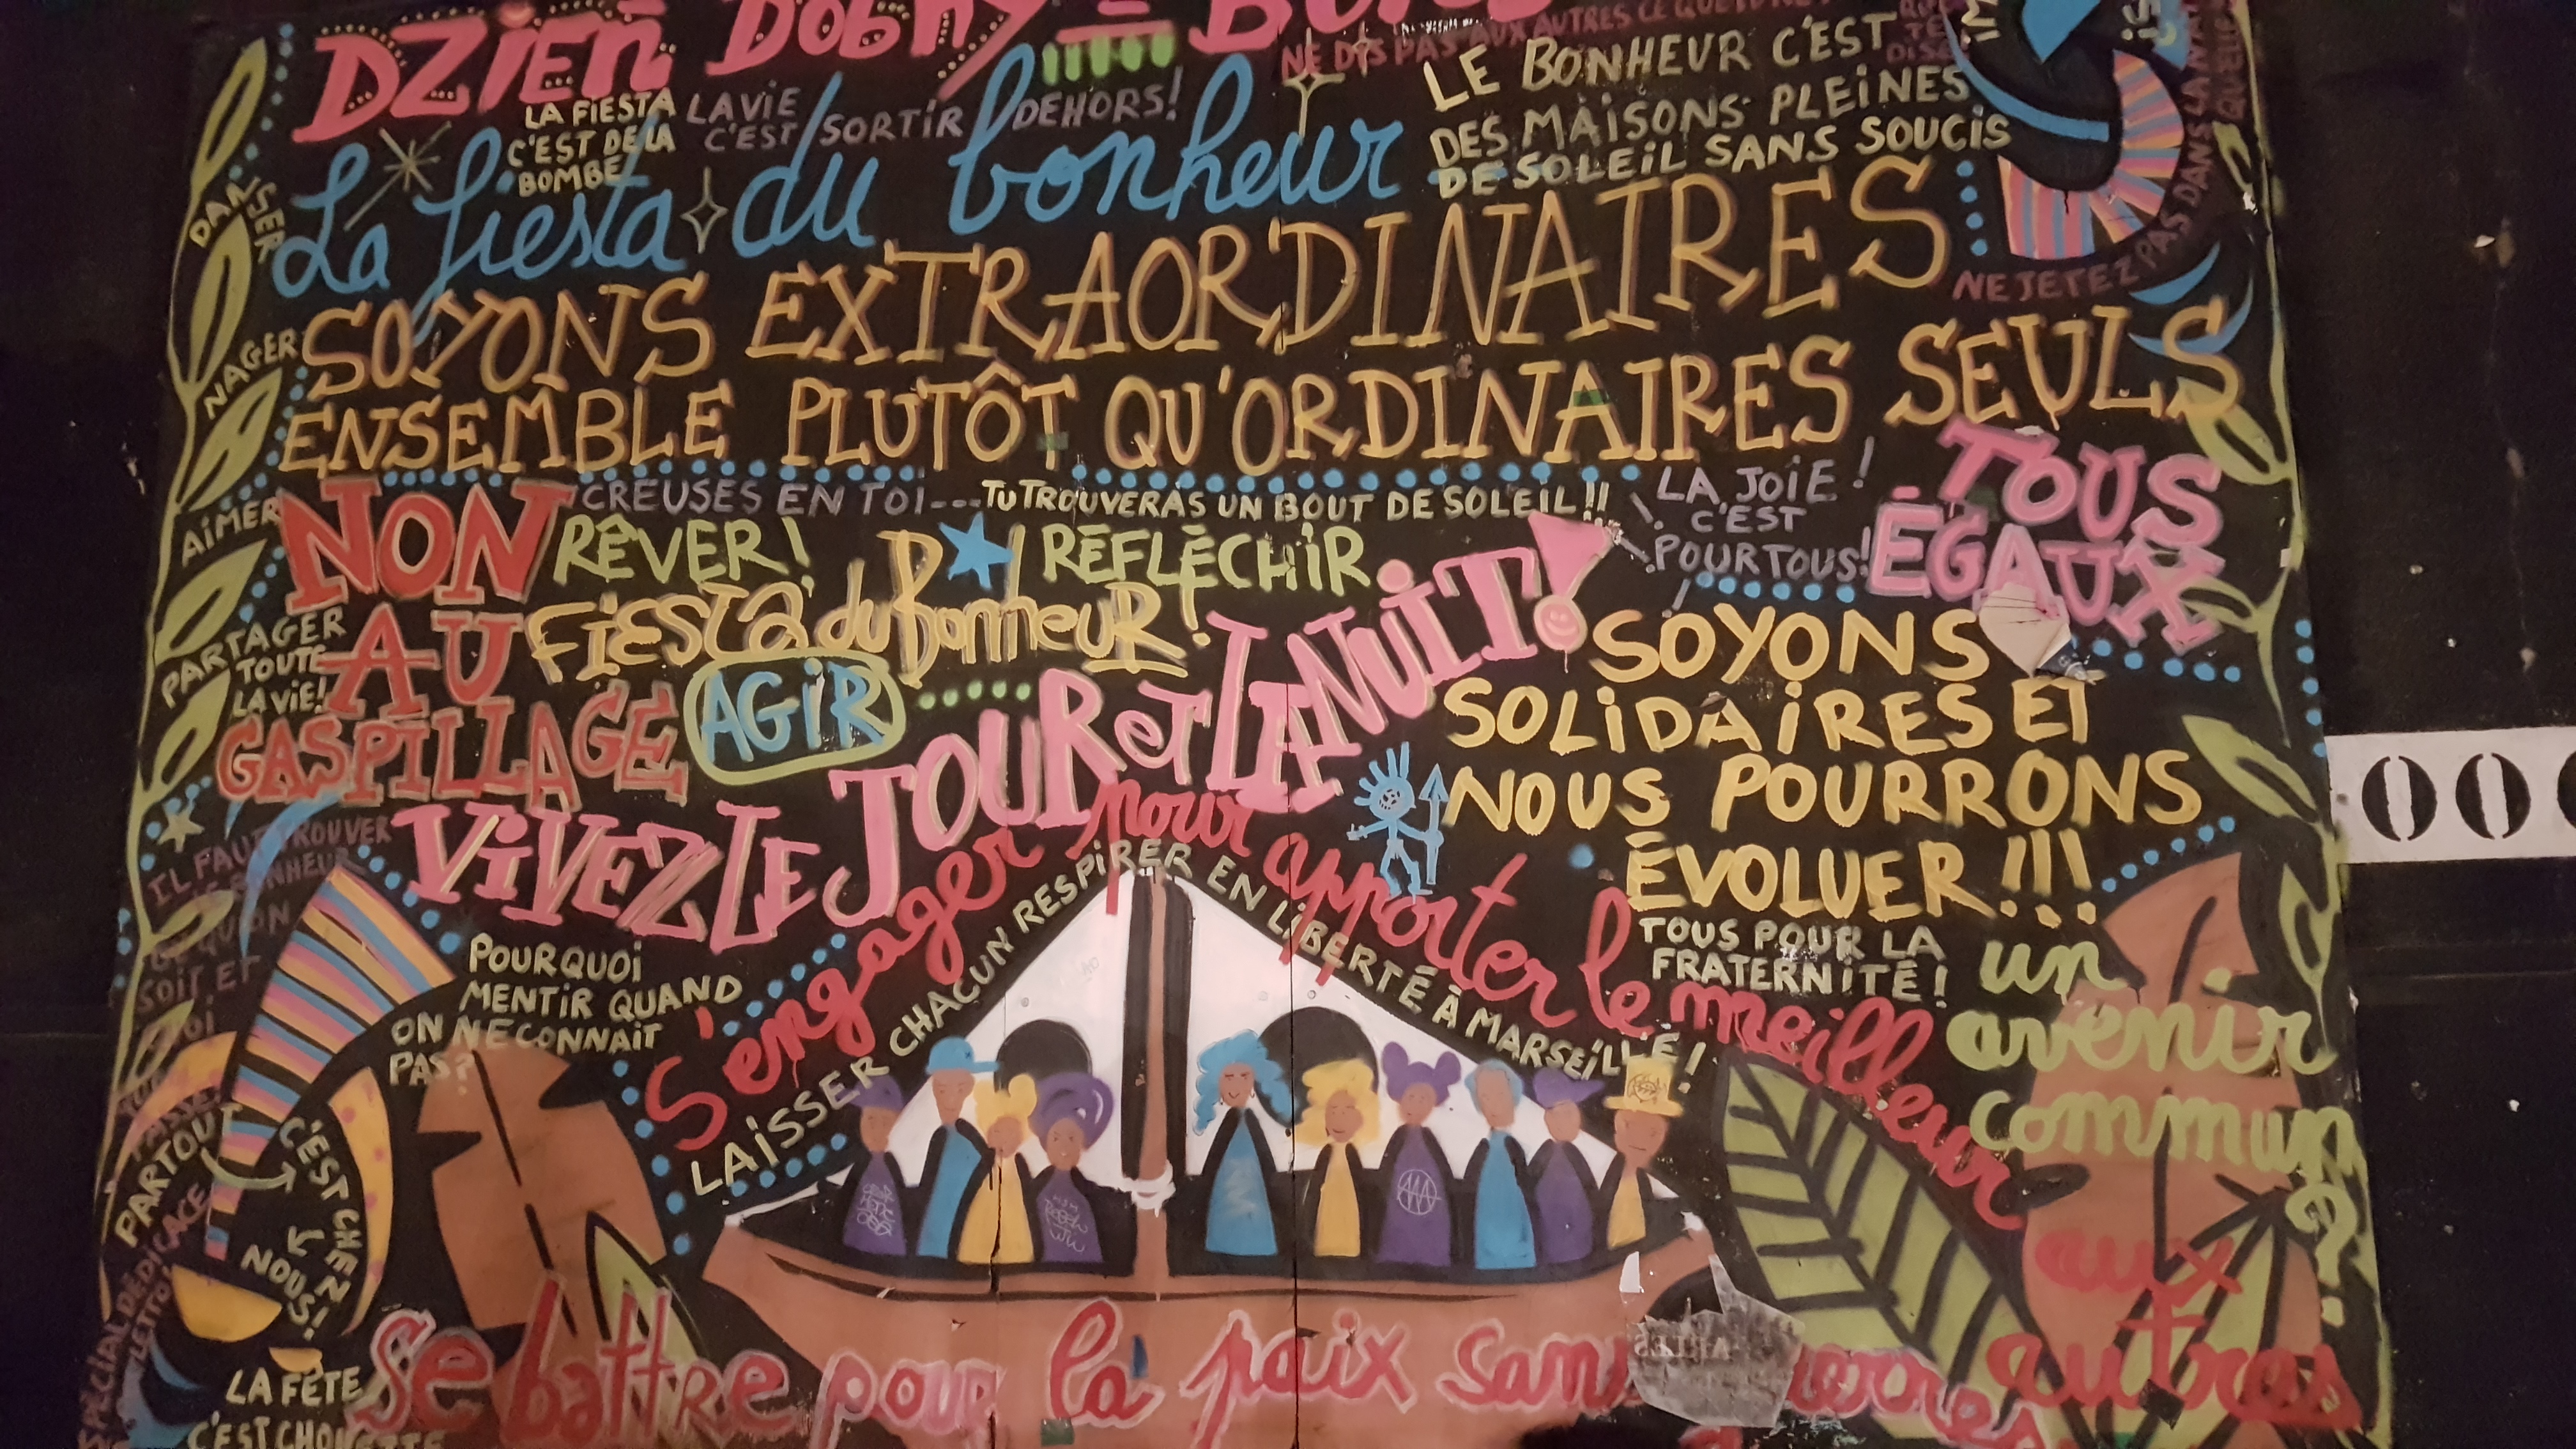 DZIEŃ DOBRY
NE DIS PAS AUX AUTRES CE QUE
LA FIESTA
C'EST DE LA
BOMBE
LA VIE
C'EST SORTIR DEHORS!
La fiesta du bonheur
LE BONHEUR C'EST
DES MAISONS PLEINES
DE SOLEIL SANS SOUCIS
NE JETEZ PAS DANS LA
SOYONS EXTRAORDINAIRES
ENSEMBLE PLUTÔT QU'ORDINAIRES SEULS
DANSER
NAGER
AIMER
PARTAGER
TOUTE
LA VIE!
CREUSES EN TOI --- TU TROUVERAS UN BOUT DE SOLEIL!!
LA JOIE!
C'EST
POUR TOUS!
TOUS
ÉGAUX
NON
AU
GASPILLAGE
RÊVER!
RÉFLÉCHIR
FIESTA du BonheuR!
AGIR
VIVEZ LE JOUR eT LA NUIT!
SOYONS
SOLIDAIRES ET
NOUS POURRONS
ÉVOLUER!!!
IL FAUT TROUVER
BONHEUR
QU'ON
SOIT ET
PARTOUT
POURQUOI
MENTIR QUAND
ON NE CONNAIT
PAS?
S'engager pour apporter le meilleur
aux
autres
LAISSER CHACUN RESPIRER EN LIBERTÉ À MARSEILLE!
TOUS POUR LA
FRATERNITÉ!
un
avenir
commun
?
C'EST CHEZ
NOUS!
SPECIAL DÉDICACE
LA FÊTE
C'EST CHOUETTE
Se battre pour la paix sans